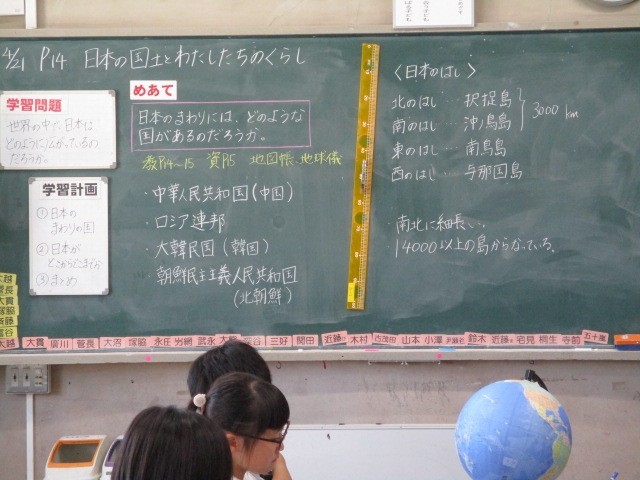 4/21 P14 日本の国土とわたしたちのくらし
学習問題
世界の中で、日本は
どのように広がっているの
だろうか。
めあて
日本のまわりには、どのような
国があるのだろうか。
教P14~15 資P5 地図帳、地球儀
学習計画
①日本の
まわりの国
②日本が
③まとめ
・中華人民共和国(中国)
・ロシア連邦
・大韓民国(韓国)
・朝鮮民主主義人民共和国
(北朝鮮)
〈日本のはし〉
北のはし … 択捉島
南のはし … 沖ノ鳥島
3000 km
東のはし … 南鳥島
西のはし … 与那国島
・南北に細長い。
14000以上の島からなっている。
大貫 廣川 菅長 大沼 塚脇 永庄 武永 三好 間田 近藤 木村 山本 小澤 鈴木 近藤 宅見 桐生 寺前 五十嵐